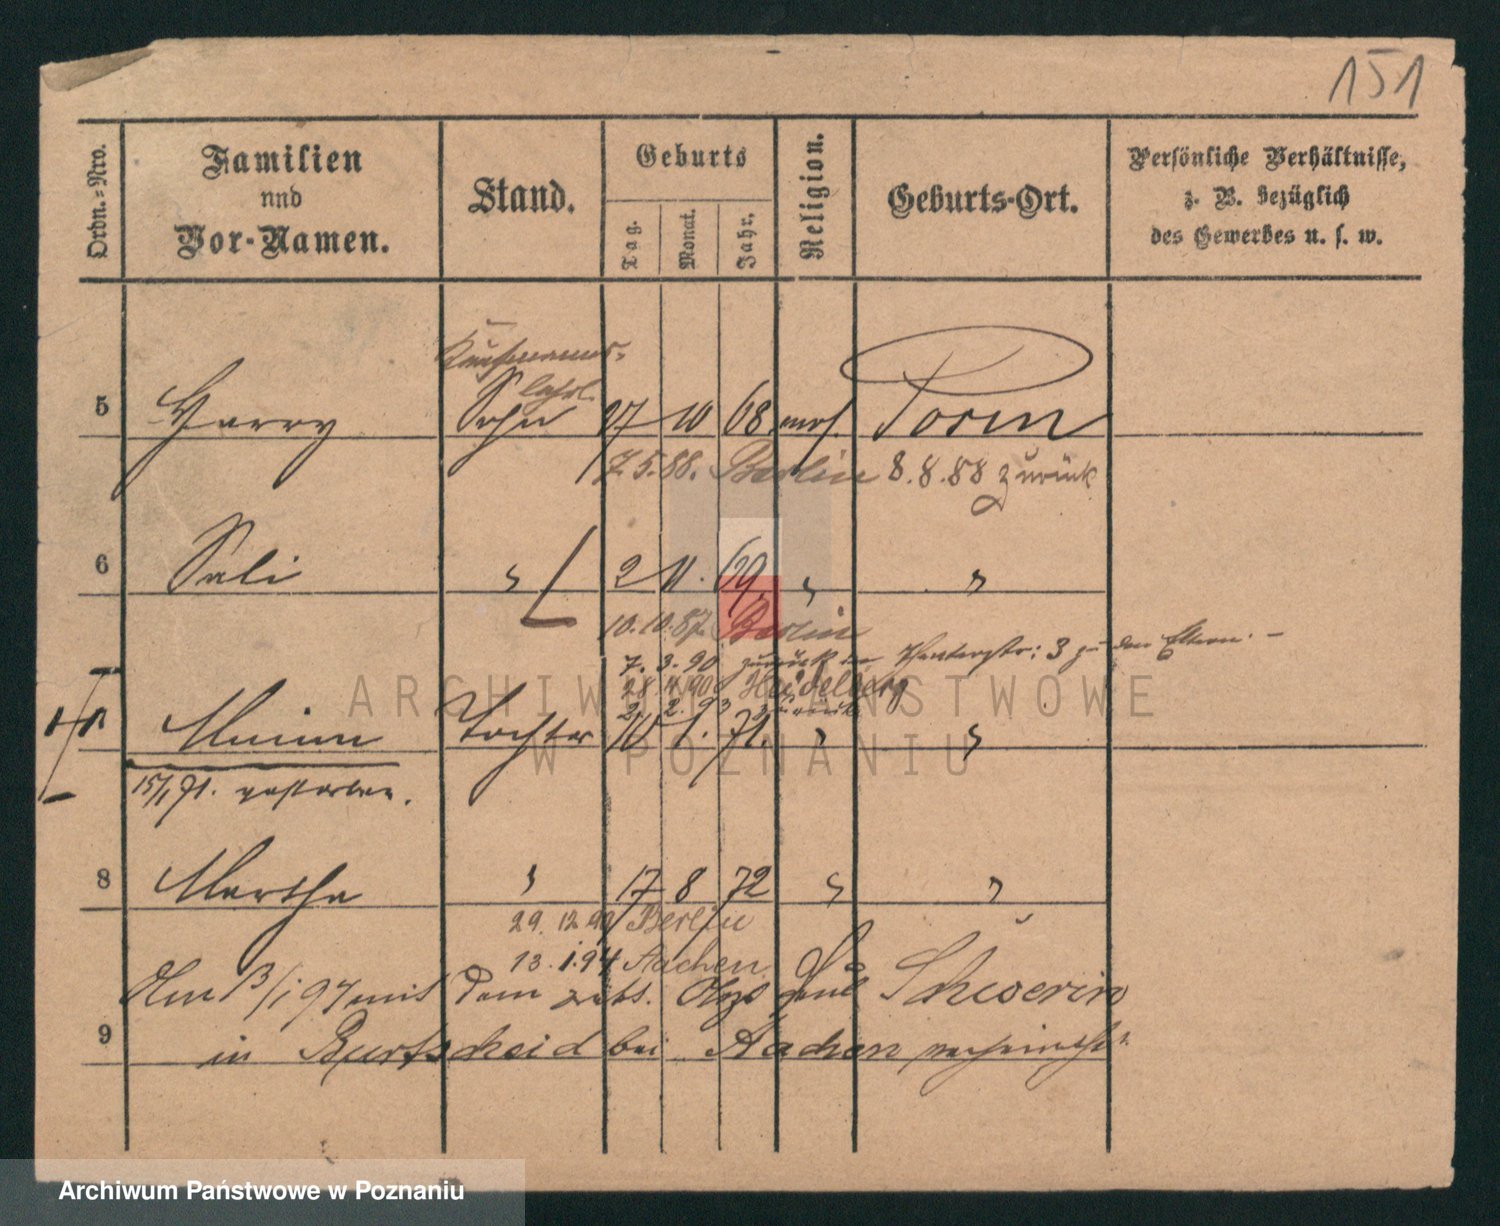 151
Ordn.-Nro.
Familien
und
Vor-Namen.
Stand.
Geburts
Tag.
Monat.
Jahr.
Religion.
Geburts-Ort.
Persönliche Verhältnisse,
z. B. bezüglich
des Gewerbes u. s. w.
Kaufmanns-
lehrl.
5 Harry Sohn 27 10 68. mos. Posen
7.5.88. Berlin 8.8.88 zurück
6 Sali " 2 11. 69. " "
10.10.87. Berlin
7. 3. 90 zurück Theaterstr: 3 zu den Eltern. -
28.4.90 Heidelberg
2. 2. 93 zurück
Tochter 10 1. 71. " "
15/1 71. gestorben.
8 Martha " 17 8 72 " "
29. 12. 90 Berlin
13. 1. 94 Aachen.
Am 13/1 97 mit dem Paul Schwerin
9 in Burtscheid bei Aachen verheirathet.
ARCHIWUM PAŃSTWOWE
W POZNANIU
Archiwum Państwowe w Poznaniu